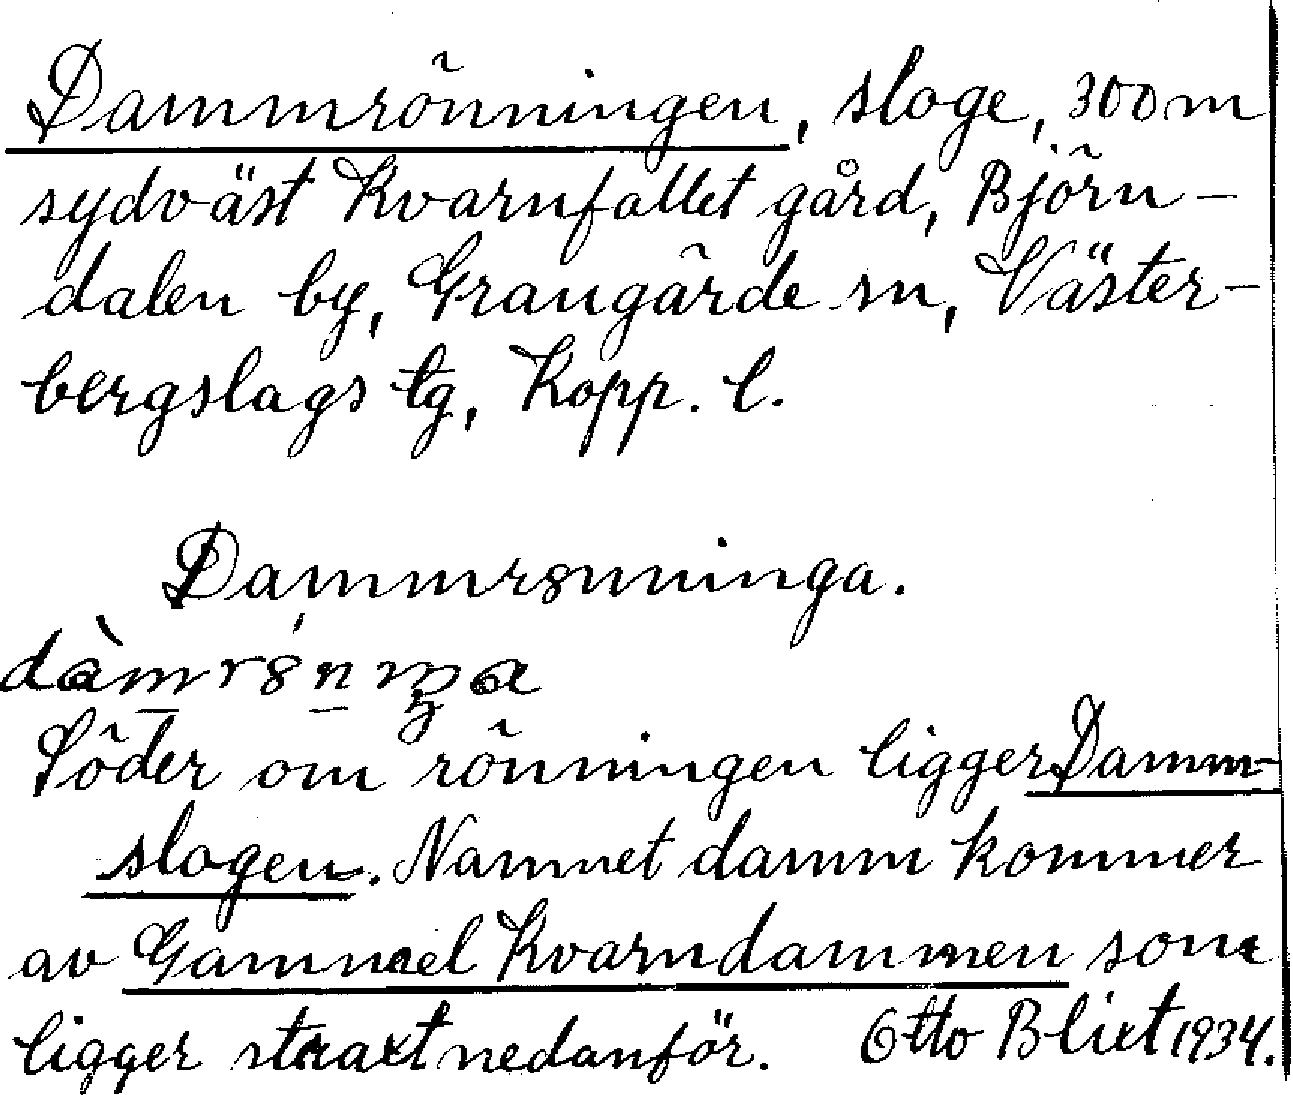 Dammrönningen, sloge, 300 m
sydväst Kvarnfallet gård, Björn-
dalen by, Grangärde sn, Väster-
bergslags tg, Kopp. l.
Dammrөnninga.
Söder om rönningen ligger Damm-
slogen. Namnet damm kommer
av Gammael Kvarndammen som
ligger straxt nedanför. Otto Blixt 1934.